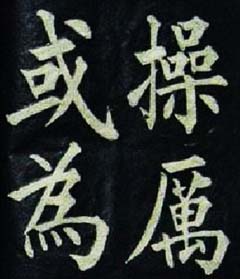 操厲
或為